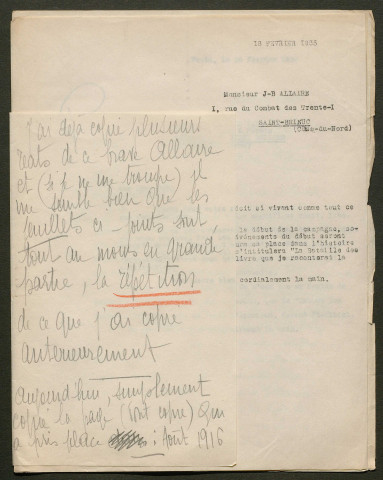 18 FEVRIER 1935
Monsieur J-B ALLAIRE
1, rue du Combat des Trente-1
SAINT-BRIEUC
(Côtes-du-Nord)
J'ai déjà copié plusieurs
de ce brave Allaire
et (si je ne me trompe) il
me semble bien que les
feuillets ci-joints sont
tout au moins en grande
partie, la répétition
de ce que j'ai copié
antérieurement
Aujourd'hui, simplement
copié la page (dont copie) qui
a pris place : Août 1916
si vivant comme tout ce
le début de la campagne,
événements du début seront
place dans l'histoire
"La Bataille des
livre que je raconterai la
cordialement la main.